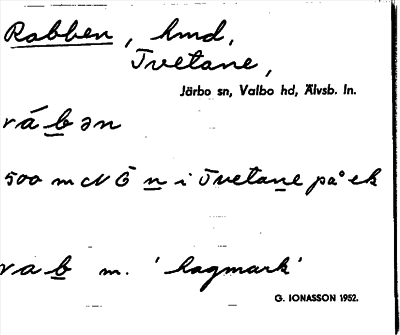 Rabben, hmd,
Tvetane,
Järbo sn, Valbo hd, Älvsb. ln.
ráb̲ən
500 m N Ö n̲ i Tvetan̲e på ek
rab̲ m. 'hagmark'
G. IONASSON 1952.